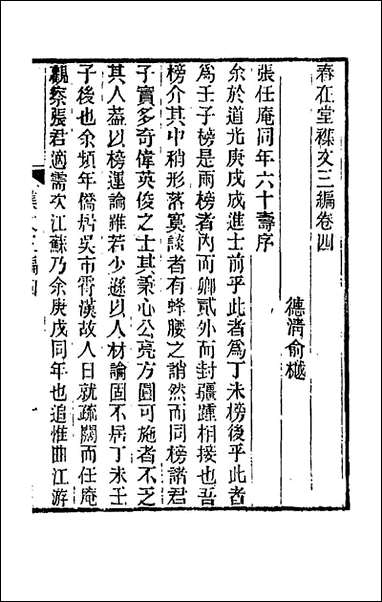 春在堂襍文三編卷四
德淸俞樾
張任庵同年六十壽序
余於道光庚戌成進士前乎此者爲丁未榜後乎此者
爲壬子榜是兩榜者內而卿貳外而封疆踵相接也吾
榜介其中稍形落寞談者有蜂腰之誚然而同榜諸君
子實多奇偉英俊之士其秉心公亮方圓可施者不乏
其人葢以榜運論雖若少遜以人材論固不居丁未壬
子後也余頻年僑居吳市霄漢故人日就疏闊而任庵
觀察張君適需次江蘇乃余庚戌同年也追惟曲江游
襍文三編四
一